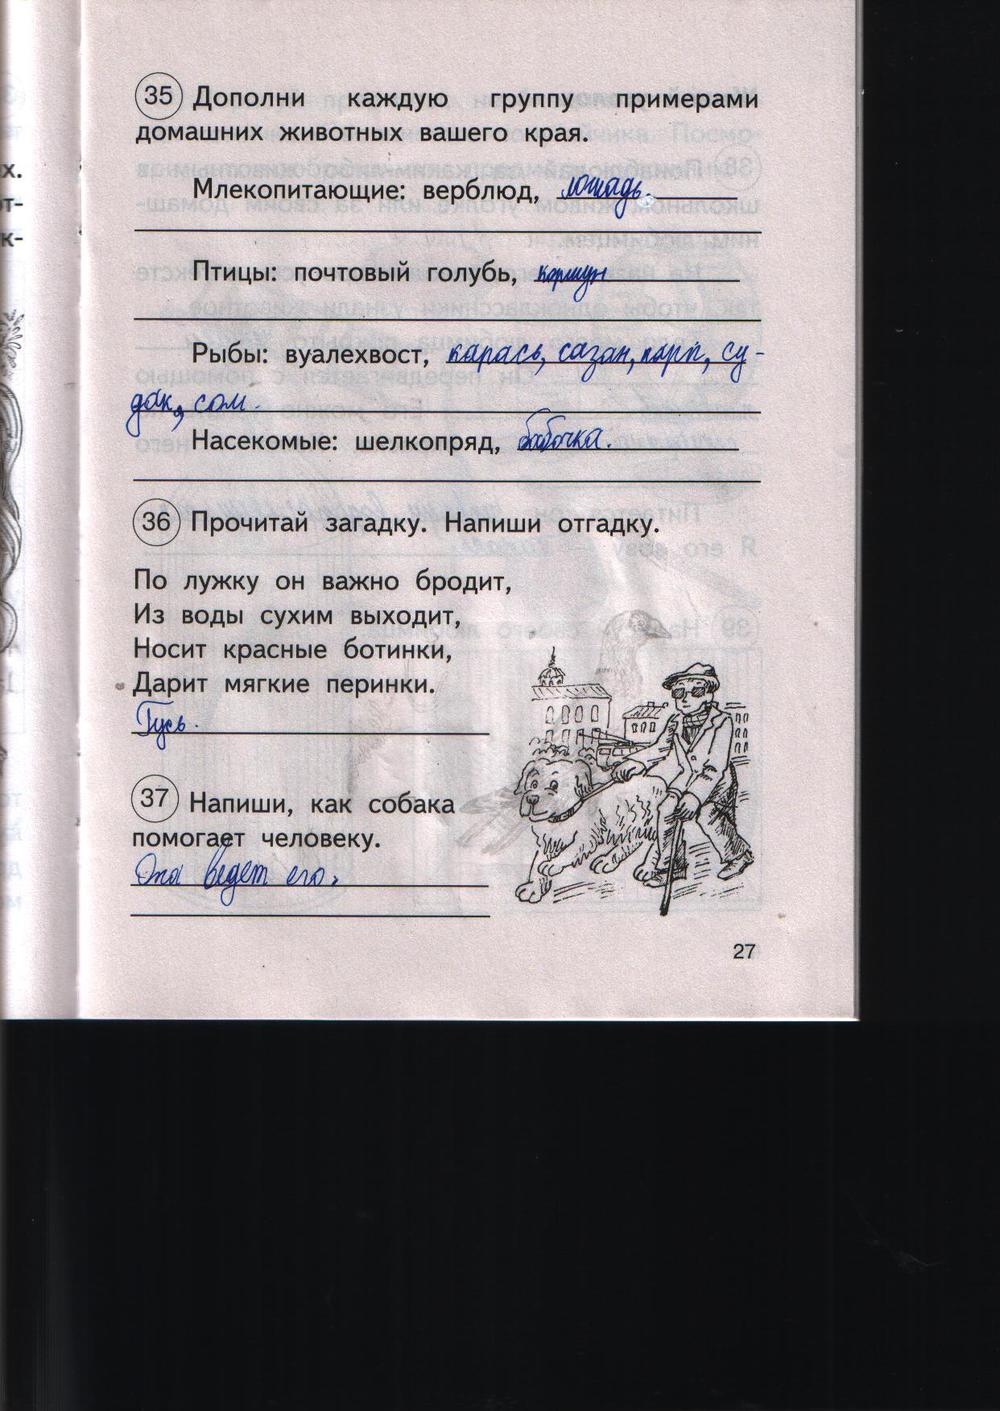 35 Дополни каждую группу примерами
домашних животных вашего края.
Млекопитающие: верблюд, лошадь.
Птицы: почтовый голубь, коршун
Рыбы: вуалехвост, карась, сазан, карп, су-
дак, сом.
Насекомые: шелкопряд, бабочка.
36 Прочитай загадку. Напиши отгадку.
По лужку он важно бродит,
Из воды сухим выходит,
Носит красные ботинки,
Дарит мягкие перинки.
Гусь.
37 Напиши, как собака
помогает человеку.
Она ведет его.
27